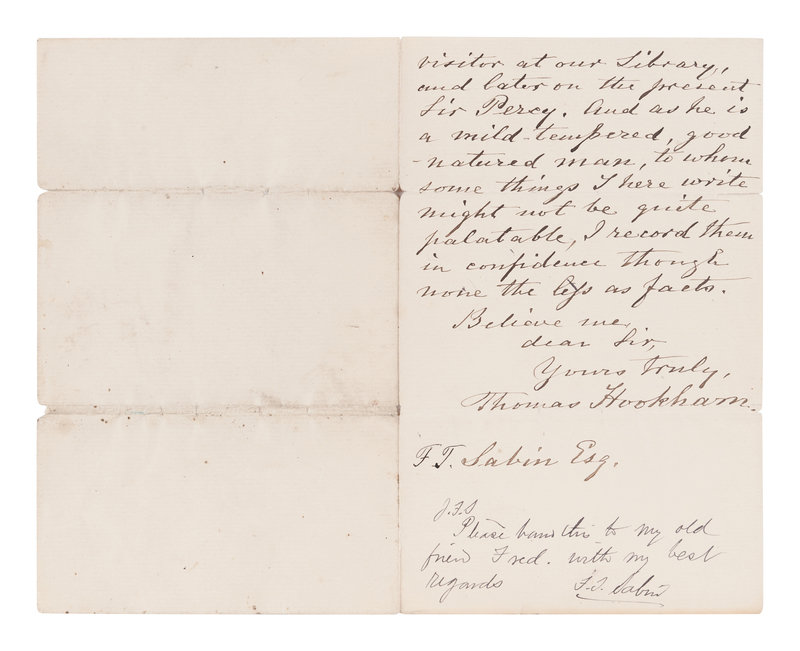 visitor at our Library,
and later on the present
Sir Percy. And as he is
a mild-tempered, good
-natured man, to whom
some things I here write
might not be quite
palatable, I record them
in confidence though
none the less as facts.
Believe me,
dear Sir,
Yours truly,
Thomas Hookham.
F.T. Sabin Esq.
J.F.S
Please hand this to my old
friend Fred. with my best
regards F.T. Sabin